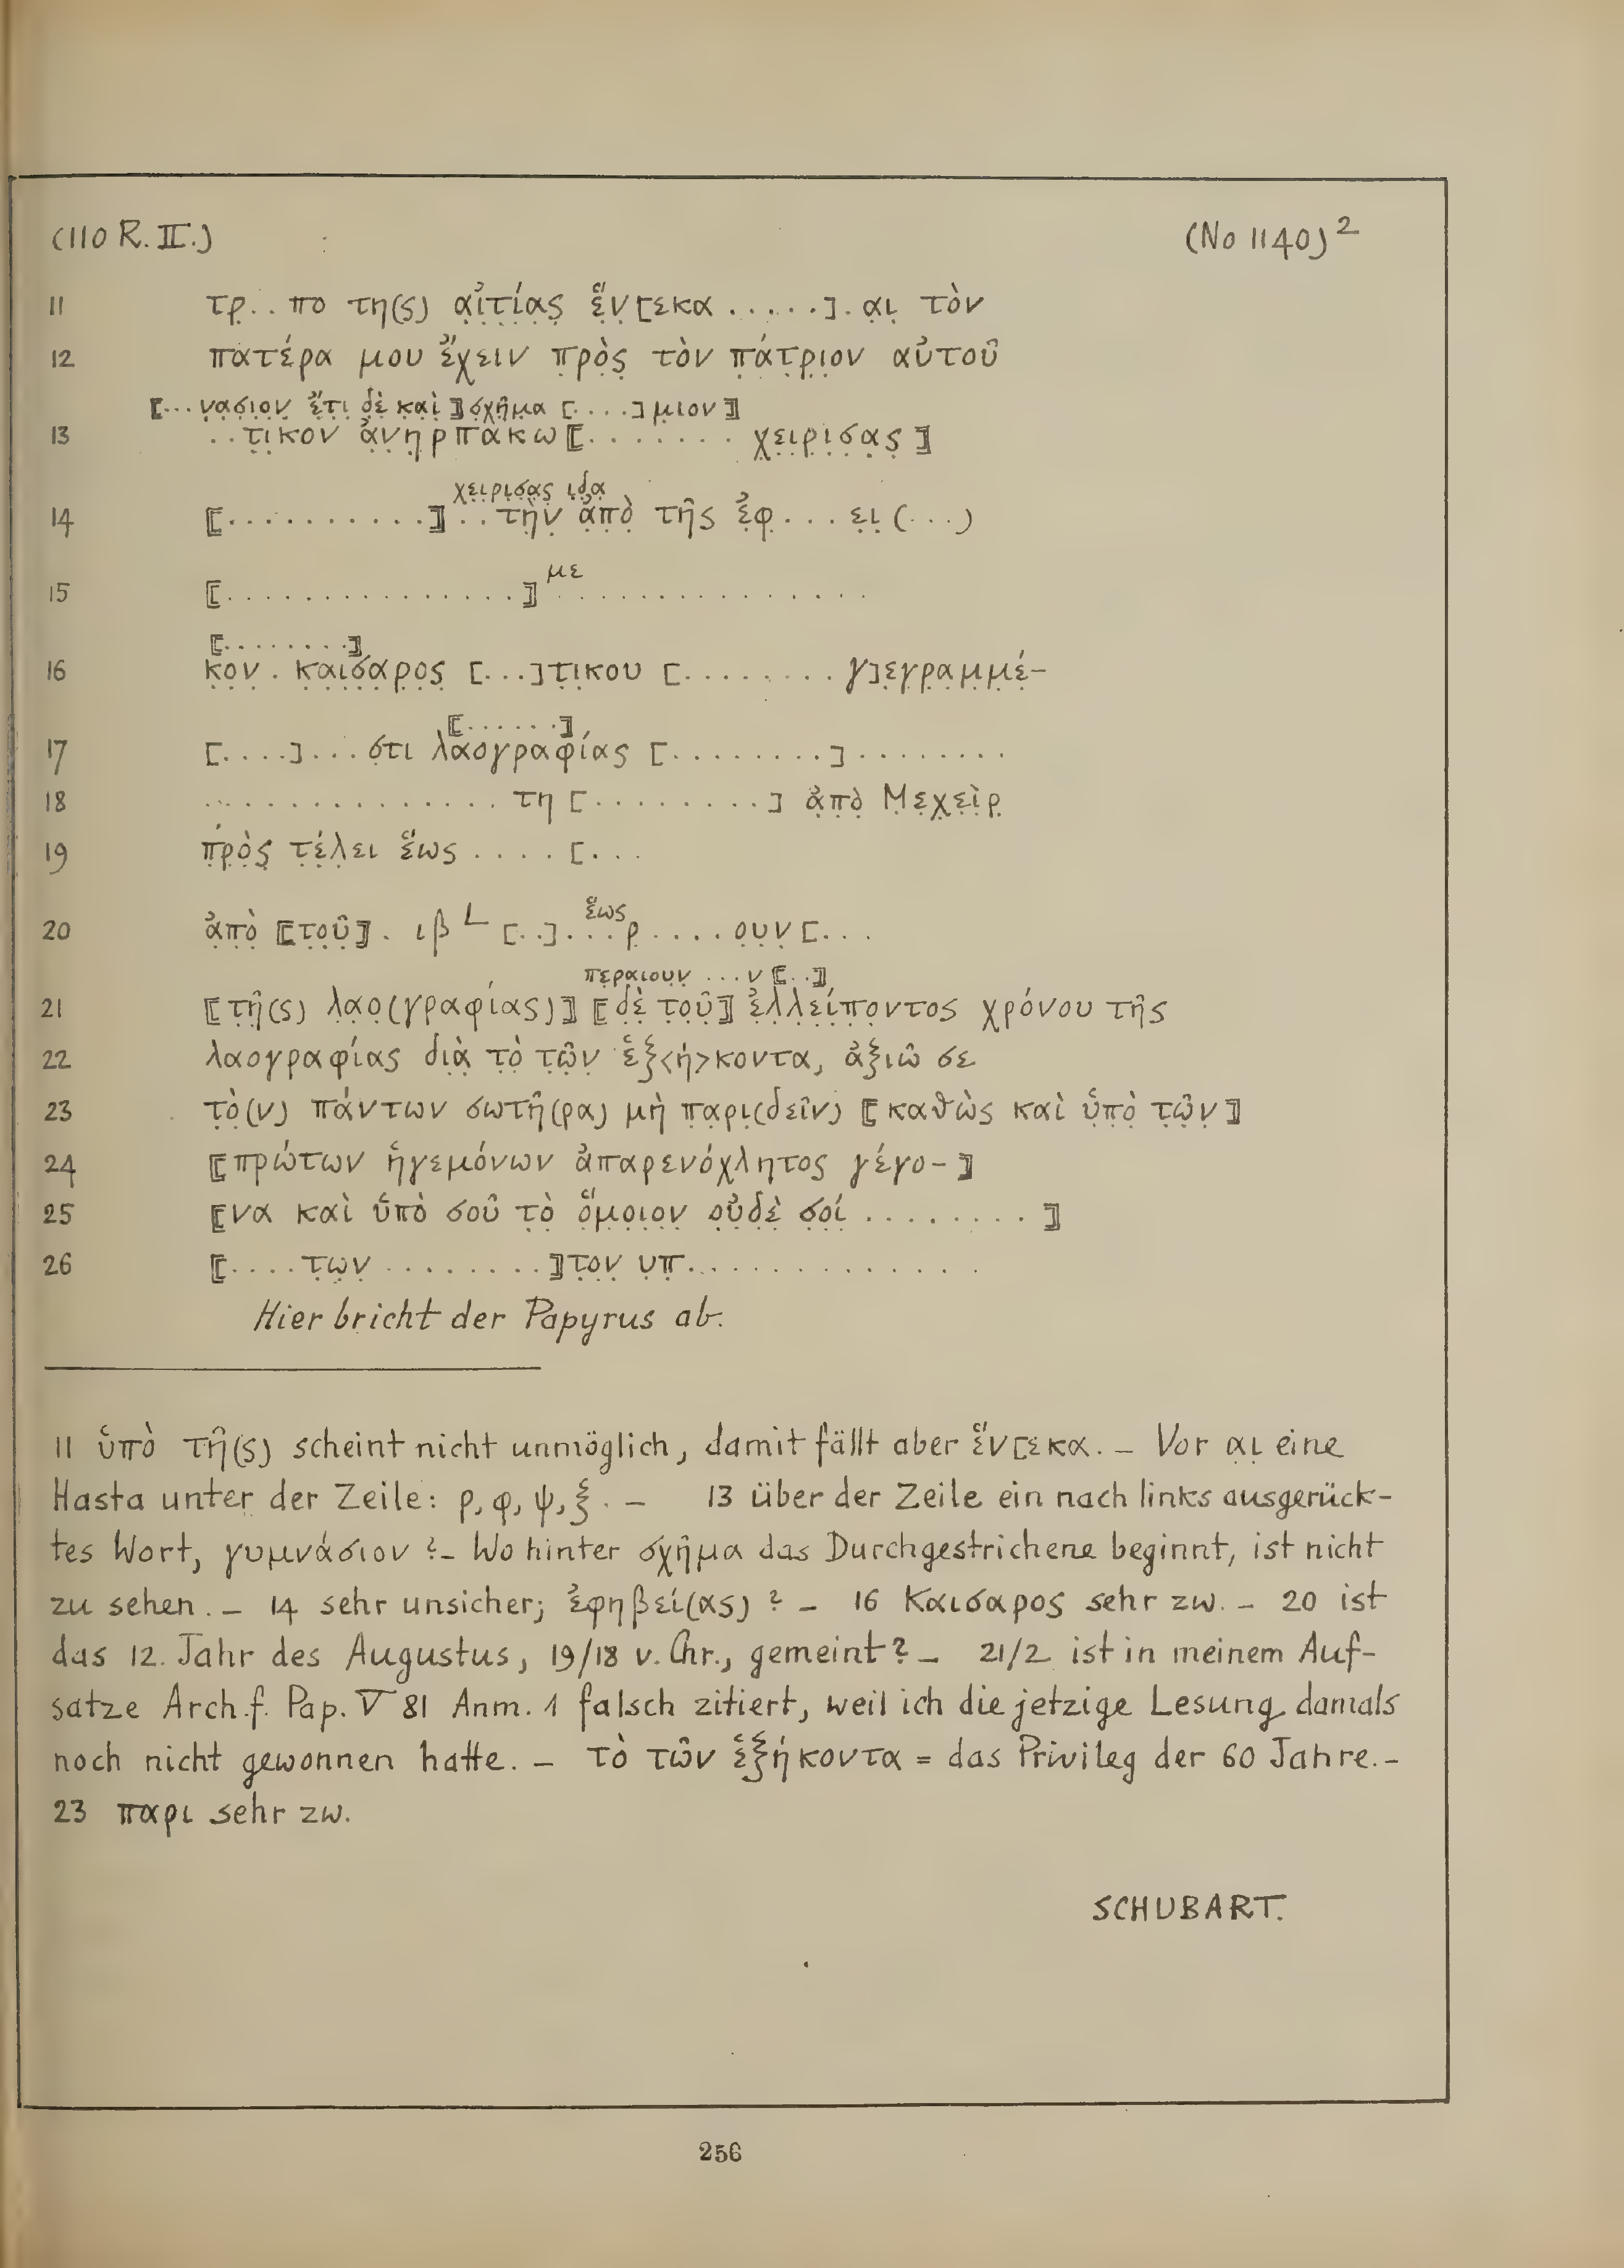 (110 R. II.) (No 1140)²
11 τρ̣. . πο τη(ς) α̣ἰ̣τ̣ί̣α̣ς̣ ἕ̣ν̣[εκα . . . . .] . α̣ι̣ τὸν
12 πατέρα μου ἔ̣χειν π̣ρ̣ὸ̣ς̣ τὸν π̣ά̣τ̣ρ̣ι̣ον αὐτοῦ
⟦. . . ν̣α̣σ̣ι̣ο̣ν̣ ἔ̣τ̣ι̣ δ̣ὲ̣ κ̣α̣ὶ̣⟧ σ̣χ̣ῆ̣μ̣α [. . . .] μ̣ιον⟧
13 . . τ̣ι̣κον ἀ̣ν̣η̣ρπακω⟦. . . . . . . χ̣ε̣ι̣ρ̣ι̣σ̣α̣ς̣⟧
χ̣ε̣ι̣ρ̣ι̣σ̣α̣ς̣ ι̣δ̣α
14 ⟦. . . . . . . . . .⟧ . . τ̣ὴ̣ν̣ ἀ̣π̣ὸ̣ τῆς ἐ̣φ̣ . . . ε̣ι̣ (. . .)
με
15 ⟦. . . . . . . . . . . . . . .⟧ . . . . . . . . . . . . .
⟦. . . . . . . .⟧
16 κ̣ο̣ν̣ . κ̣α̣ι̣σ̣α̣ρ̣ο̣ς̣ [. . .]τ̣ι̣κου [. . . . . . . . γ]ε̣γ̣ρ̣α̣μ̣μ̣έ̣-
⟦. . . . . .⟧
17 [. . . .] . . . ὅτι λαογραφίας [. . . . . . . .] . . . . . . . .
18 . . . . . . . . . . . . . . τη [. . . . . . . . .] ἀ̣π̣ὸ̣ Μ̣ε̣χ̣ε̣ὶ̣ρ̣
19 π̣ρ̣ὸ̣ς̣ τ̣έ̣λ̣ει ἕως . . . . [. . .
ἕως
20 ἀ̣π̣ὸ̣ ⟦τ̣ο̣ῦ̣⟧ . ιβ L [. .] . . . ρ̣ . . . . ο̣υ̣ν̣ [. . .
π̣ε̣ρ̣α̣ιουν̣ . . . ν ⟦. .⟧
21 ⟦τ̣ῆ̣(ς) λ̣α̣ο̣(γραφίας)⟧ ⟦δ̣ὲ̣ τ̣ο̣ῦ̣⟧ ἐ̣λ̣λ̣ε̣ί̣π̣ο̣ντος χρόνου τῆς
22 λαογραφίας δι̣ὰ̣ τ̣ὸ̣ τ̣ῶ̣ν̣ ἑξ<ή>κοντα, ἀξιῶ σε
23 τ̣ὸ̣(ν) πάντων σωτῆ(ρα) μὴ π̣α̣ρ̣ι̣(δεῖν) ⟦καθὼς καὶ ὑ̣π̣ὸ̣ τ̣ῶ̣ν̣⟧
24 ⟦πρώτων ἡγεμόνων ἀπαρενόχλητος γέγο-⟧
25 ⟦να καὶ ὑπὸ σοῦ τ̣ὸ̣ ὅ̣μ̣ο̣ι̣ο̣ν̣ ο̣ὐ̣δ̣ὲ̣ σ̣ο̣ί̣ . . . . . . . .⟧
26 ⟦. . . . τ̣ω̣ν̣ . . . . . . . .⟧τ̣ο̣ν̣ υ̣π̣. . . . . . . . . . . . .
Hier bricht der Papyrus ab.
11 ὑπὸ τῆ(ς) scheint nicht unmöglich, damit fällt aber ἕν[εκα. – Vor α̣ι̣ eine
Hasta unter der Zeile: ρ, φ, ψ, ξ. – 13 über der Zeile ein nach links ausgerück-
tes Wort, γυμνάσιον ? – Wo hinter σχῆμα das Durchgestrichene beginnt, ist nicht
zu sehen. – 14 sehr unsicher; ἐφηβεί(ας) ? – 16 Καισαρος sehr zw. – 20 ist
das 12. Jahr des Augustus, 19/18 v. Chr., gemeint? – 21/2 ist in meinem Auf-
satze Arch. f. Pap. V 81 Anm. 1 falsch zitiert, weil ich die jetzige Lesung damals
noch nicht gewonnen hatte. – τὸ τῶν ἑξήκοντα = das Privileg der 60 Jahre. –
23 παρι sehr zw.
SCHUBART.
256